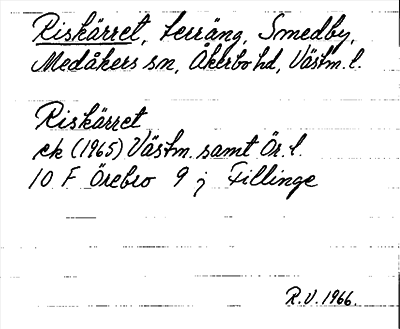 Riskärret, terräng, Smedby,
Medåkers sn, Åkerbo hd, Västm. l.
Riskärret
ek (1965) Västm. samt Ör. l.
10 F Örebro 9 j Fillinge
R.V. 1966.